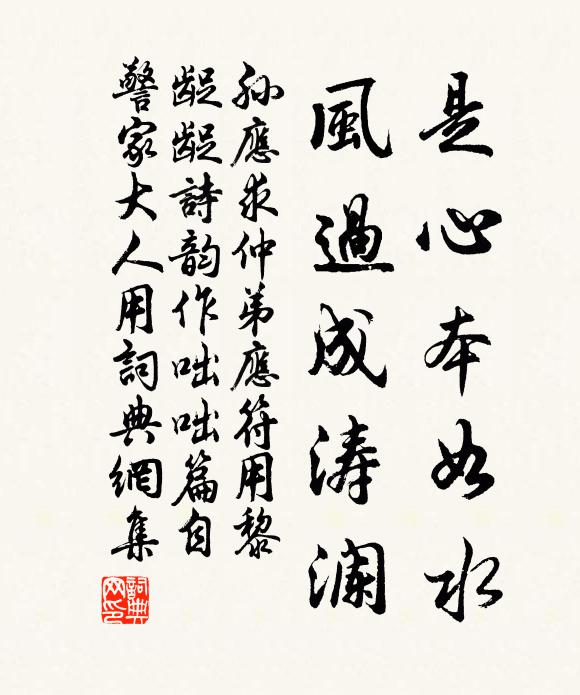 是心本如水
風過成濤瀾
孫應求仲弟應符用黎
齪齪詩韵作咄咄篇自
警家大人用詞典網集
詞典
网印